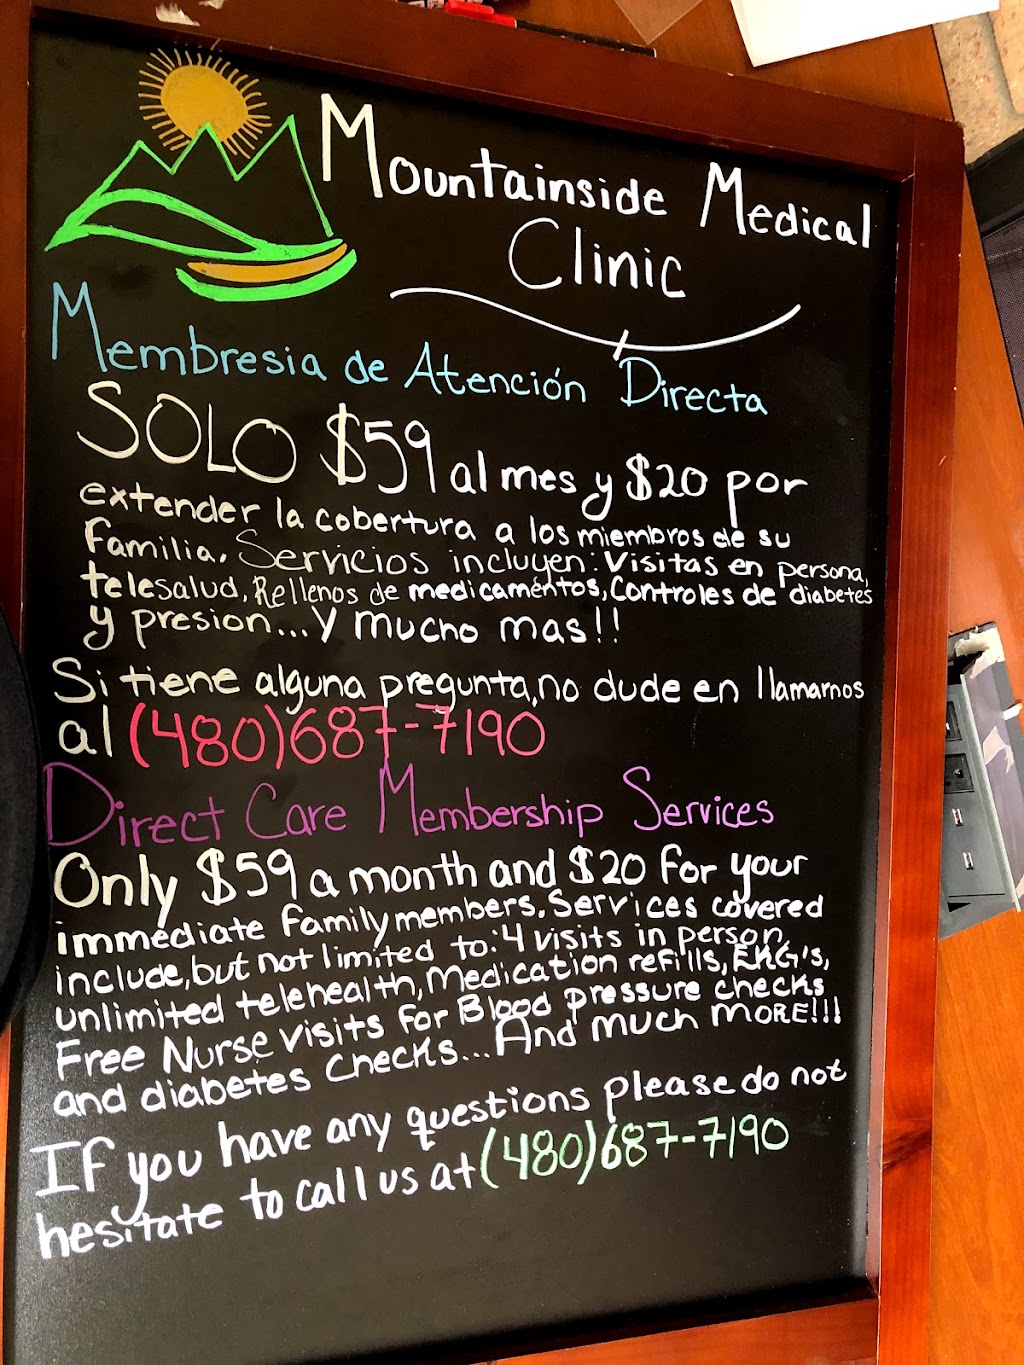 Mountainside Medical
Clinic
Membresia de Atención Directa
SOLO $59 al mes y $20 por
extender la cobertura a los miembros de su
familia. Servicios incluyen: Visitas en persona,
telesalud, Rellenos de medicaméntos, Controles de diabetes
y presion...y mucho mas!!
Si tiene alguna pregunta, no dude en llamarnos
al (480)687-7190
Direct Care Membership Services
Only $59 a month and $20 for your
immediate family members. Services covered
include, but not limited to: 4 visits in person,
unlimited telehealth, Medication refills, EKG's,
Free Nurse visits for Blood pressure checks
and diabetes checks... And much MORE!!!
If you have any questions please do not
hesitate to call us at (480)687-7190